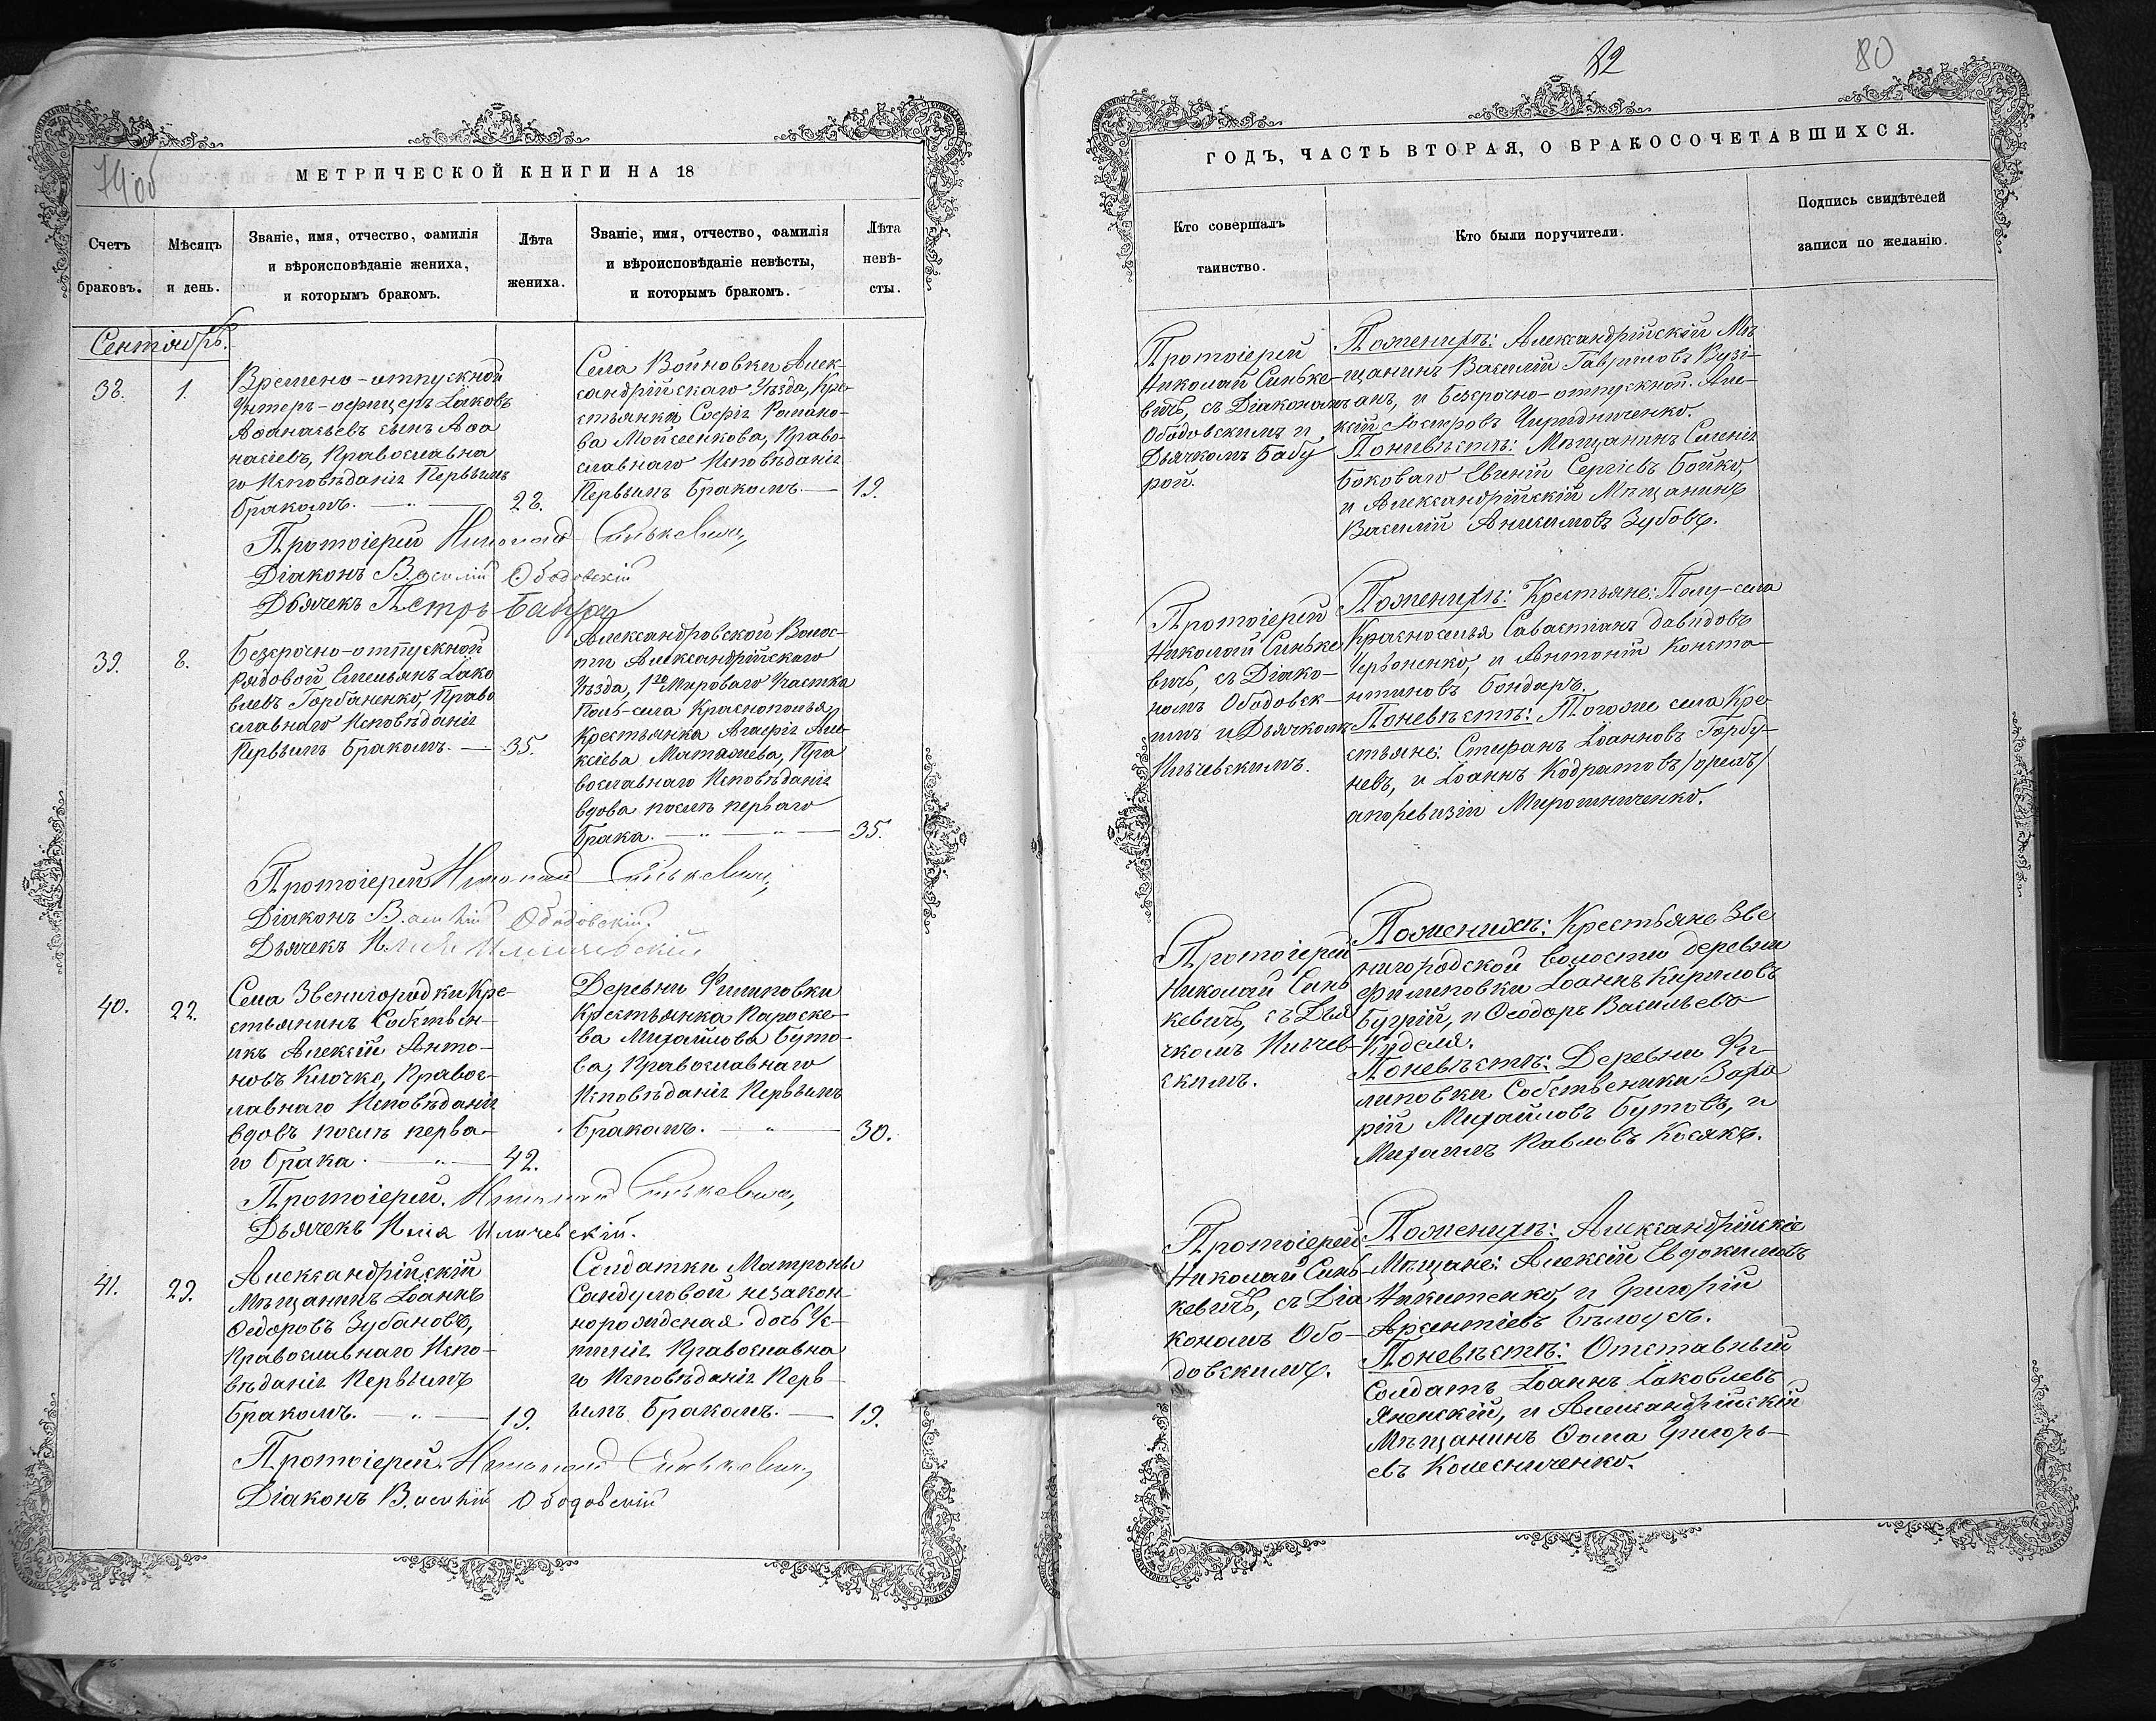 79 об
МЕТРИЧЕСКОЙ КНИГИ НА 18
Счетъ браковъ.
Мѣсяцъ и день.
Званіе, имя, отчество, фамилія
и вѣроисповѣданіе жениха,
и которымъ бракомъ.
Лѣта
жениха.
Званіе, имя, отчество, фамилія
и вѣроисповѣданіе невѣсты,
и которымъ бракомъ.
Лѣта
невѣ-
сты.
Сентябрь.
38.
1.
Времено-отпускной
Унтеръ-офицеръ Іаковъ
Аѳанасьевъ сынъ Аѳа
насіевъ, Православна
го Исповѣданія Первымъ
бракомъ.
28.
Села Войновки Алек-
сандрійскаго Уѣзда, Кре-
стьянка Софія Романо-
ва Мойсеенкова, Право-
славнаго Исповѣданія
Первымъ бракомъ.
19.
Протоіерей Николай Синькевичъ
Діаконъ Василій Ободовскій
Дьячекъ Петръ Бабура
39.
8.
Безсрочно-отпускной
Рядовой Емельянъ Іако
влевъ Горбаненко, Право
славнаго Исповѣданія
Первымъ бракомъ.
35.
Александровской Волос-
ти Александрійскаго
Уѣзда, 1го Мироваго Участка
Поль-села Краснополья
Крестьянка Агафія Але-
ксіева Матяшева, Пра
вославнаго Исповѣданія
вдова послѣ перваго
брака.
35.
Протоіерей Николай Синькевичъ
Діаконъ Василій Ободовскій.
Дьячекъ Илія Ильичевскій
40.
22.
Села Звенигородки Кре-
стьянинъ Собствен-
икъ Алексій Анто-
новъ Клочко, Правос-
лавнаго Исповѣданія
вдовъ послѣ перва-
го брака.
42.
Деревни Филиповки
Крестьянка Параске-
ва Михайлова Буто-
ва, Православнаго
Исповѣданія Первымъ
бракомъ.
30.
Протоіерей Николай Синькевичъ
Дьячекъ Илія Ильичевскій.
41.
29.
Александрійскій
Мѣщанинъ Іоаннъ
Ѳедоровъ Зубановъ,
Православнаго Испо-
вѣданія Первымъ
бракомъ.
19.
Солдатки Матроны
Сандуловой незакон
норожденая дочь Ус-
тинія Православна
го Исповѣданія Перв
ымъ бракомъ.
19.
Протоіерей Николай Синькевичъ
Діаконъ Василій Ободовскій
82
80
ГОДЪ, ЧАСТЬ ВТОРАЯ, О БРАКОСОЧЕТАВШИХСЯ.
Кто совершалъ
таинство.
Кто были поручители.
Подпись свидѣтелей
записи по желанію.
Протоіерей
Николай Синьке-
вичъ, съ Діакономъ
Ободовскимъ и
Дьячкомъ Бабу
рой.
Поженихѣ: Александрійскій Мѣ
щанинъ Василій Гавриловъ Вузі-
анъ, и безсрочно-отпускной Але-
ксій Петровъ Чиридниченко.
Поневѣстѣ: Мѣщанинъ Селенія
Боковаго Евгеній Сергіевъ Бойко,
и Александрійскій Мѣщанинъ
Василій Анисимовъ Зубовъ.
Протоіерей
Николай Синьке
вичъ, съ Діако-
номъ Ободовск-
имъ и Дьячкомъ
Ильчевскимъ.
Поженихѣ: Крестьяне: Полу-села
Красноселья Савастіанъ Давидовъ
Червоненко, и Антоній Конста-
нтиновъ Бондарь.
Поневѣстѣ: Тогоже села Кре
стьяне: Стефанъ Іоанновъ Горбу-
невъ, и Іоаннъ Кодратовъ /орелъ/
апоревизіи Мирошниченко.
Протоіерей
Николай Синь
кевичъ, съ Дья
чкомъ Ильчев-
скимъ.
Поженихѣ: Крестьяне Зве
нигородской волости деревни
Филиповки Іоаннъ Кириловъ
Бугрій, и Ѳеодоръ Васильевъ
Куделя.
Поневѣстѣ: Деревни Фи-
липовки Собственики Заха
рій Михайловъ Бутовъ, и
Михаилъ Павловъ Косякъ.
Протоіерей
Николай Синь-
кевичъ, съ Діа
кономъ Обо-
довскимъ.
Поженихѣ: Александрійскіе
Мѣщане: Алексій Евдокимовъ
Никитенко, и Григорій
Арсентіевъ Бѣлоусъ.
Поневѣстѣ: Отставный
Солдатъ Іоаннъ Іаковлевъ
Яненскій, и Александрійскій
Мѣщанинъ Ѳома Григорь-
евъ Колесниченко.